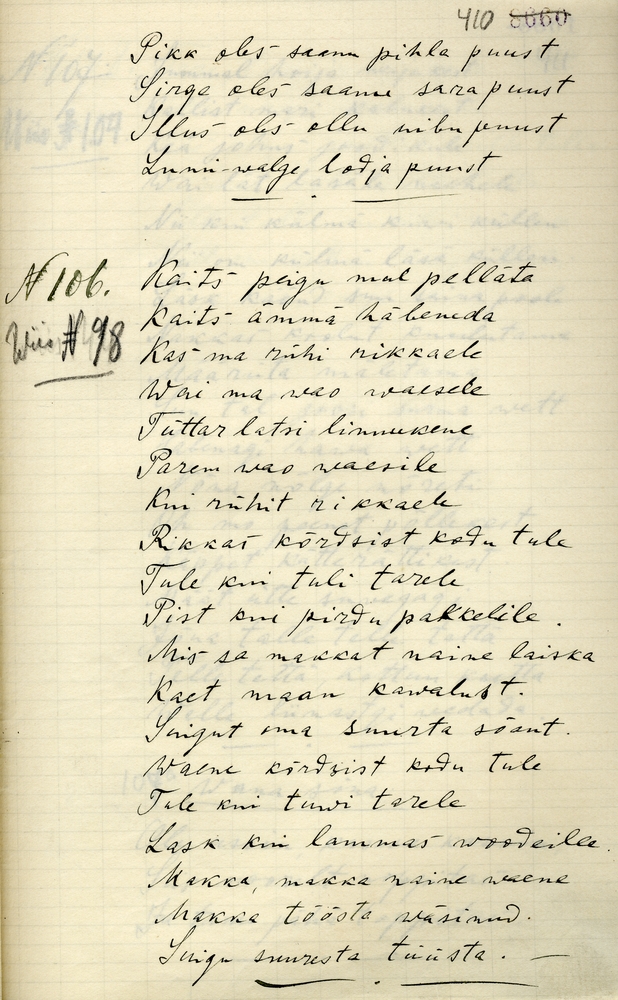 410 8060
Pikk oles saanu pihla puust
Sirge oles saanu sarapuust
Illus oles ollu uibu puust
Lumi-walge lodja puust
N 106.
Wiis N 98
Kaits peigu mul pelläta
Kaits ämmä häbeneda
Kas ma rühi rikkaele
Wai ma wao waesele
Tüttar latsi linnukene
Parem wao waesile
Kui rühit rikkaele
Rikkas kõrdsist kodu tule
Tule kui tuli tarele
Pist kui pirdu pakkelile.
Mis sa makkat naine laiska
Kaet maan kawalust.
Suigut oma suurta sõant.
Waene kõrdsist kodu tule
Tule kui tuwi tarele
Lask kui lammas woodeilee.
Makka, makka naine waene
Makka töösta wäsinud.
Suigu suuresta tüüsta. —